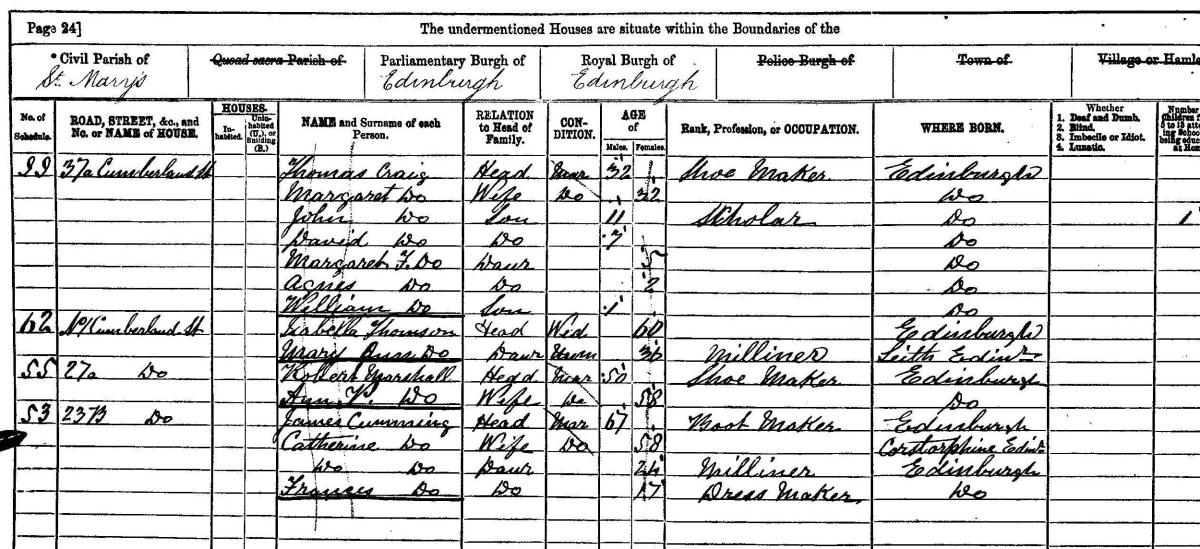 Page 24] The undermentioned Houses are situate within the Boundaries of the
Civil Parish of Quoad sacra Parish of Parliamentary Burgh of Royal Burgh of Police Burgh of Town of Village or Hamle
St. Mary's Edinburgh Edinburgh
No. of Schedule. ROAD, STREET, &c., and No. or NAME of HOUSE. HOUSES. Inhabited. Uninhabited (U.), or Building (B.) NAME and Surname of each Person. RELATION to Head of Family. CONDITION. AGE of Males. Females. Rank, Profession, or OCCUPATION. WHERE BORN. Whether 1. Deaf and Dumb. 2. Blind. 3. Imbecile or Idiot. 4. Lunatic.
37a Cumberland St Thomas Craig Head Mar 32 Shoe Maker Edinburgh
Margaret Do Wife Do 32 Do
John Do Son 11 Scholar Do 1
David Do Do 7 Do
Margaret F. Do Daur 5 Do
Agnes Do Do 2 Do
William Do Son 1 Do
62 Cumberland St Isabella Thomson Head Wid 60 Edinburgh
Mary Ann Do Daur Unm 36 Milliner Leith Edinr
55 27a Do Robert Marshall Head Mar 50 Shoe Maker Edinburgh
Ann Do Wife Do 58 Do
53 23B Do James Cumming Head Mar 67 Boot Maker Edinburgh
Catherine Do Wife Do 58 Corstorphine Edinr
Do Do Daur 24 Milliner Edinburgh
Frances Do Do 17 Dress Maker Do